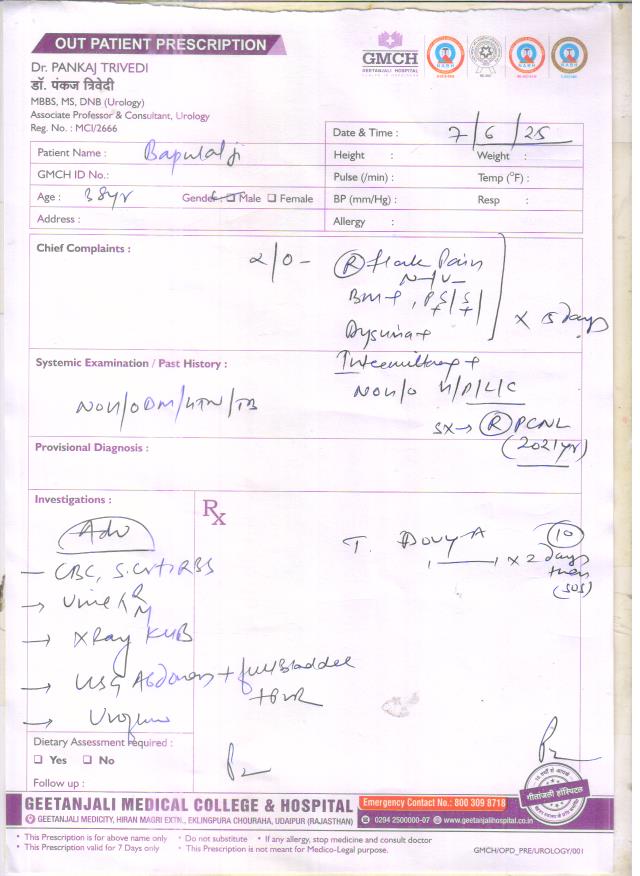 OUT PATIENT PRESCRIPTION
Dr. PANKAJ TRIVEDI
डॉ. पंकज त्रिवेदी
MBBS, MS, DNB (Urology)
Associate Professor & Consultant, Urology
Reg. No. : MCI/2666
GMCH
GEETANJALI HOSPITAL
Date & Time : 7/6/25
Patient Name : Bapulalji
Height : Weight :
GMCH ID No.:
Pulse (/min) : Temp (°F) :
Age : 38yr Gender: ☐ Male ☐ Female
BP (mm/Hg) : Resp :
Address :
Allergy :
Chief Complaints :
(R) flank Pain
N- V-
Dysuria+
x 5 days
Systemic Examination / Past History :
Intermittency +
NOH/O DM/HTN/TB
NOH/O
Sx → (R) PCNL
(2021yr)
Provisional Diagnosis :
Investigations :
Rx
Adv
T. (10)
x 2 days
then
(SOS)
— CBC, S.Crt, RBS
→ Urine R
M
→ X Ray KUB
→ USG Abdomen + full Bladder
+ PVR
→
Dietary Assessment required :
☐ Yes ☐ No
Follow up :
गीतांजली हॉस्पिटल
GEETANJALI MEDICAL COLLEGE & HOSPITAL
Emergency Contact No.: 800 309 8718
GEETANJALI MEDICITY, HIRAN MAGRI EXTN., EKLINGPURA CHOURAHA, UDAIPUR (RAJASTHAN)
0294 2500000-07 www.geetanjalihospital.co.in
• This Prescription is for above name only • Do not substitute • If any allergy, stop medicine and consult doctor
• This Prescription valid for 7 Days only • This Prescription is not meant for Medico-Legal purpose.
GMCH/OPD_PRE/UROLOGY/001